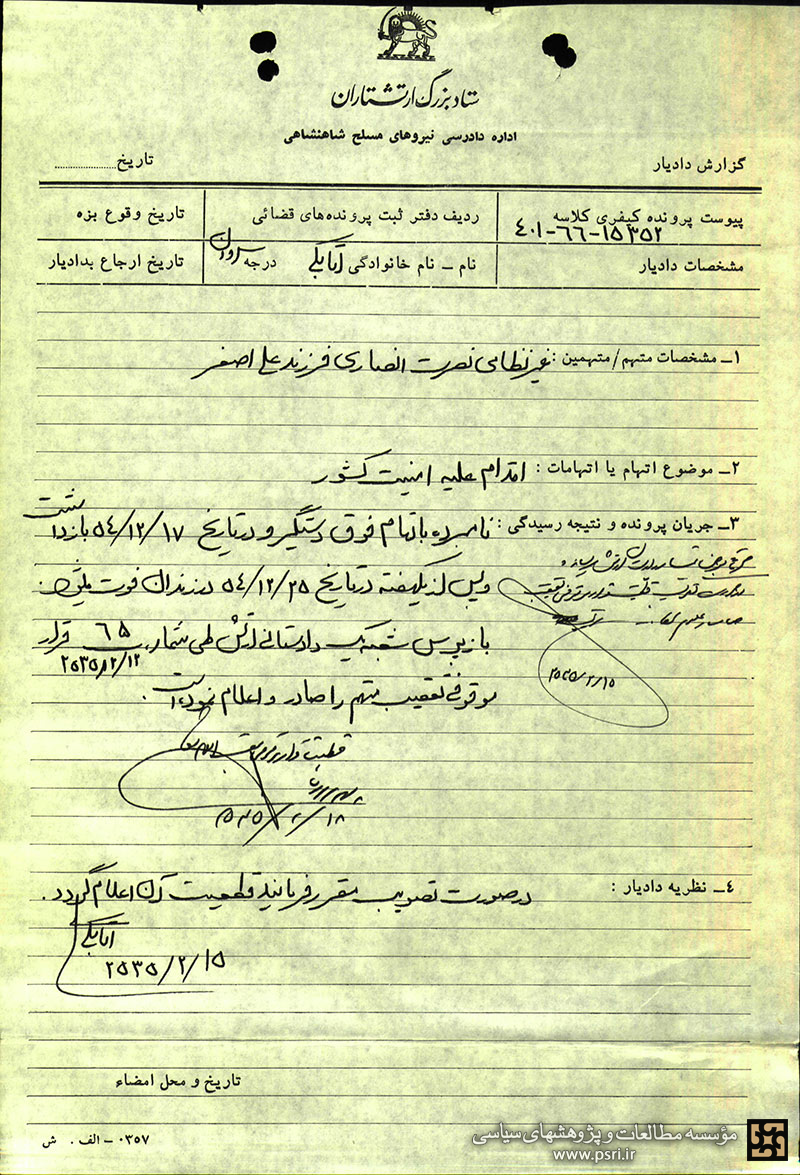 ستاد بزرگ ارتشتاران
اداره دادرسی نیروهای مسلح شاهنشاهی
گزارش دادیار
تاریخ..........
پیوست پرونده کیفری کلاسه
۴۰۱-۶۶-۱۵۳۵۲
ردیف دفتر ثبت پرونده‌های قضائی
تاریخ وقوع بزه
مشخصات دادیار
نام - نام خانوادگی اتابکی درجه سروان
تاریخ ارجاع بدادیار
۱- مشخصات متهم/متهمین: غیرنظامی نصرت انصاری فرزند علی اصغر
۲- موضوع اتهام یا اتهامات: اقدام علیه امنیت کشور
۳- جریان پرونده و نتیجه رسیدگی: نامبرده باتهام فوق دستگیر و درتاریخ ۵۴/۱۲/۱۷ بازداشت
و پس از یکهفته درتاریخ ۵۴/۱۲/۲۵ در زندان فوت
بازپرس شعبه یک دادستانی ارتش طی شماره ۶۵ ۲۵۳۵/۲/۱۲ قرار
موقوفی تعقیب متهم را صادر و اعلام نموده است.
۲۵۳۵/۲/۱۵
۲۵۳۵/۲/۱۸
۴- نظریه دادیار: درصورت تصویب مقرر فرمائید قطعیت آن اعلام گردد.
اتابکی
۲۵۳۵/۲/۱۵
تاریخ و محل امضاء
۰۳۵۷ - الف. ش
مؤسسه مطالعات و پژوهشهای سیاسی
www.psri.ir